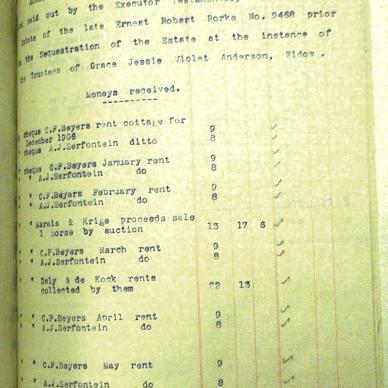 paid out by the Executor
Estate of the late Ernest Robert Rorke No. 9468 prior
the Sequestration of the Estate at the instance of
Trustees of Grace Jessie Violet Anderson, Widow.
Moneys received.
cheque C.F.Beyers rent cottage for
December 1906 9
cheque A.J.Serfontein ditto 8
cheque C.F.Beyers January rent 9
" A.J.Serfontein do 8
" " C.F.Beyers February rent 9
" " A.J.Serfontein do 8
" Marais & Krige proceeds sale
1 horse by auction 13 17 6
" " C.F.Beyers March rent 9
" A.J.Serfontein do 8
" " Daly & de Kock rents
collected by them 22 13
" " C.F.Beyers April rent 9
" " A.J.Serfontein do 8
" " C.F.Beyers May rent 9
" " A.J.Serfontein do 8